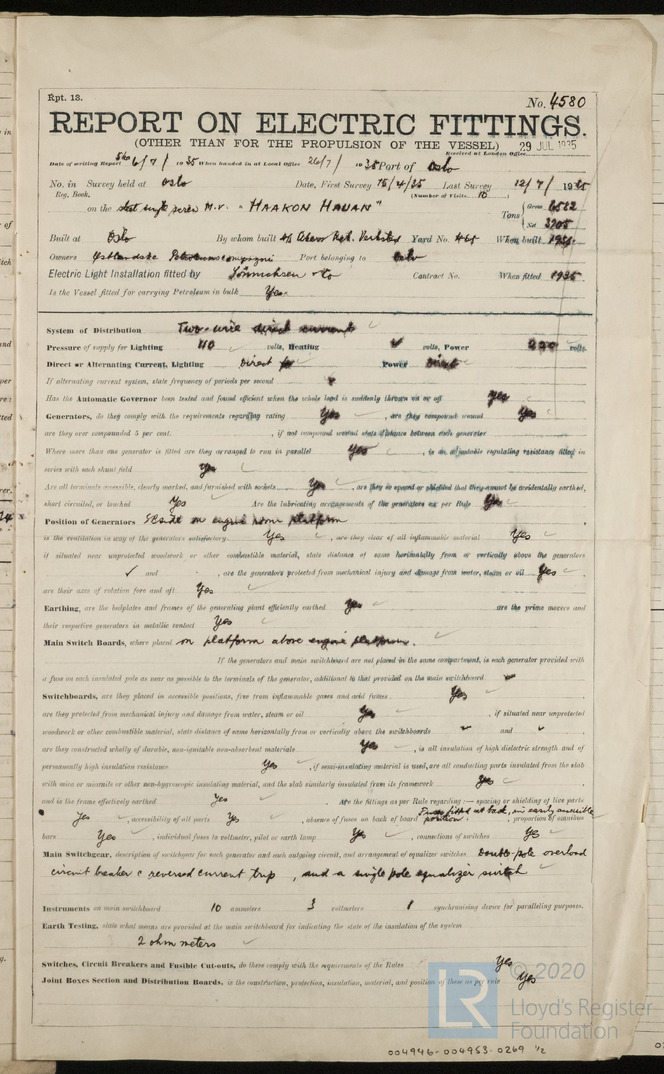 Rpt. 13.
No. 4580
REPORT ON ELECTRIC FITTINGS.
(OTHER THAN FOR THE PROPULSION OF THE VESSEL)
29 JUL 1935
Received at London Office
Date of writing Report 6/7/1935 When handed in at Local Office 26/7/1935 Port of Oslo
No. in Survey held at Oslo Date, First Survey 15/4/35 Last Survey 12/7/1935
Reg. Book. (Number of Visits 10)
on the steel single screw M.V. "HAAKON HAUAN" Tons { Gross Net 3705
Built at Oslo By whom built Yard No. 465 When built 1935
Owners Østlandske Petroleumscompagni Port belonging to Oslo
Electric Light Installation fitted by Sönnichsen & Co Contract No. When fitted 1935
Is the Vessel fitted for carrying Petroleum in bulk Yes
System of Distribution Two-wire direct current
Pressure of supply for Lighting 110 volts, Heating volts, Power 220 volts.
Direct or Alternating Current, Lighting Direct Power Direct
If alternating current system, state frequency of periods per second
Has the Automatic Governor been tested and found efficient when the whole load is suddenly thrown on or off Yes
Generators, do they comply with the requirements regarding rating Yes, are they compound wound Yes
are they over compounded 5 per cent. , if not compound wound state distance between each generator
Where more than one generator is fitted are they arranged to run in parallel Yes, is an adjustable regulating resistance fitted in
series with each shunt field Yes
Are all terminals accessible, clearly marked, and furnished with sockets Yes, are they so spaced or shielded that they cannot be accidentally earthed,
short circuited, or touched Yes Are the lubricating arrangements of the generators as per Rule Yes
Position of Generators on engine room platform
is the ventilation in way of the generators satisfactory Yes, are they clear of all inflammable material Yes
if situated near unprotected woodwork or other combustible material, state distance of same horizontally from or vertically above the generators
✓ and , are the generators protected from mechanical injury and damage from water, steam or oil Yes
are their axes of rotation fore and aft Yes
Earthing, are the bedplates and frames of the generating plant efficiently earthed Yes are the prime movers and
their respective generators in metallic contact Yes
Main Switch Boards, where placed on platform above engine platform.
If the generators and main switchboard are not placed in the same compartment, is each generator provided with
a fuse on each insulated pole as near as possible to the terminals of the generator, additional to that provided on the main switchboard
Switchboards, are they placed in accessible positions, free from inflammable gases and acid fumes Yes
are they protected from mechanical injury and damage from water, steam or oil Yes, if situated near unprotected
woodwork or other combustible material, state distance of same horizontally from or vertically above the switchboards and
are they constructed wholly of durable, non-ignitable non-absorbent materials Yes, is all insulation of high dielectric strength and of
permanently high insulation resistance Yes, if semi-insulating material is used, are all conducting parts insulated from the slab
with mica or micanite or other non-hygroscopic insulating material, and the slab similarly insulated from its framework Yes
and is the frame effectively earthed Yes Are the fittings as per Rule regarding:— spacing or shielding of live parts
Yes, accessibility of all parts Yes, absence of fuses on back of board Fuses fitted at back, in easily accessible position., proportion of omnibus
bars Yes, individual fuses to voltmeter, pilot or earth lamp Yes, connections of switches Yes
Main Switchgear, description of switchgear for each generator and each outgoing circuit, and arrangement of equalizer switches Double pole overload
circuit breaker c reversed current trip, and a single pole equalizer switch
Instruments on main switchboard 10 ammeters 3 voltmeters 1 synchronising device for paralleling purposes.
Earth Testing, state what means are provided at the main switchboard for indicating the state of the insulation of the system
2 ohm meters
Switches, Circuit Breakers and Fusible Cut-outs, do these comply with the requirements of the Rules Yes
Joint Boxes Section and Distribution Boards, is the construction, protection, insulation, material, and position of these as per rule Yes
LR
© 2020
Lloyd's Register
Foundation
004946-004953-0269 1/2